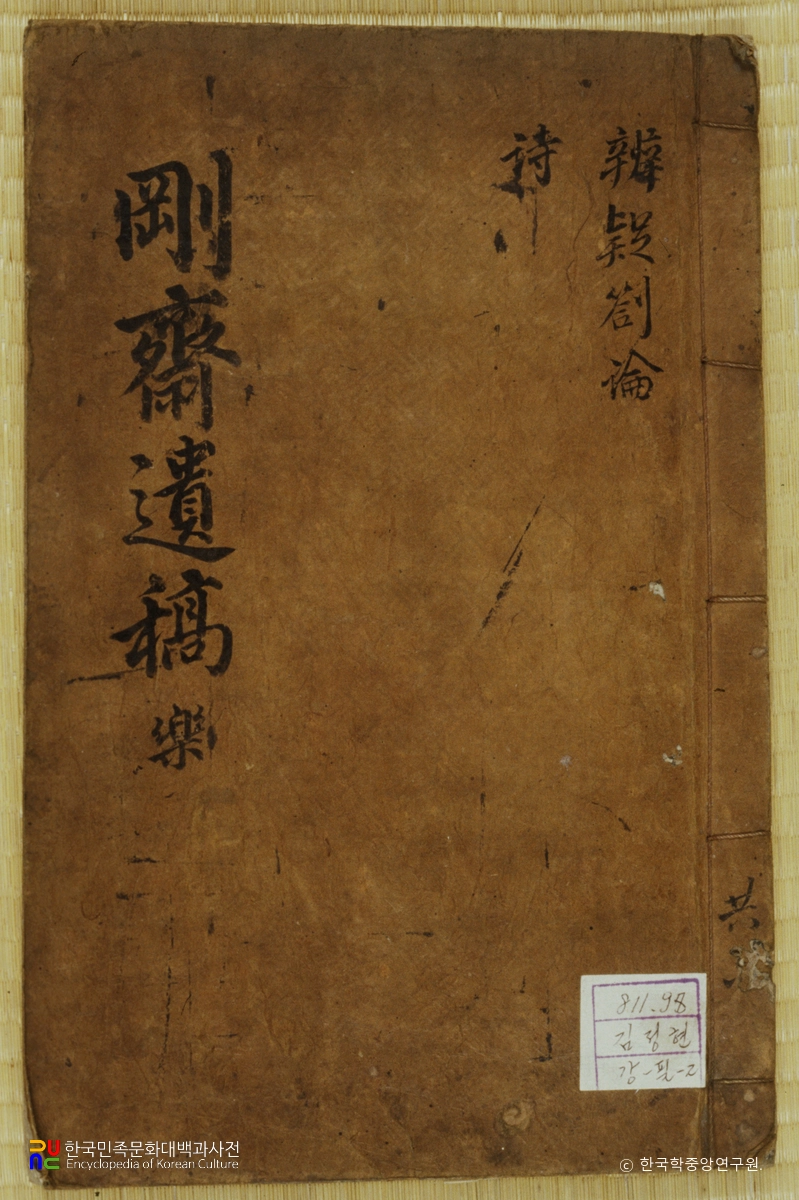 辨疑劄論
詩
剛齋遺稿 樂
共
811.98
김정현
강-필-2
한국민족문화대백과사전
Encyclopedia of Korean Culture
© 한국학중앙연구원.